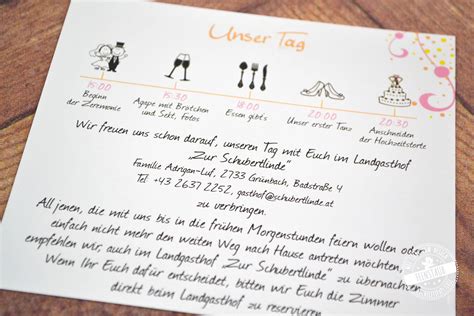 Unser Tag
15:00
Beginn
der Zeremonie
15:30
Agape mit Brötchen
und Sekt, Fotos
18:00
Essen gibt's
20:00
Unser erster Tanz
20:30
Anschneiden
der Hochzeitstorte
Wir freuen uns schon darauf, unseren Tag mit Euch im Landgasthof
"Zur Schubertlinde"
Familie Adrigan-Luf, 2733 Grünbach, Badstraße 4
Tel. +43 2637 2252, gasthof@schubertlinde.at
zu verbringen.
All jenen, die mit uns bis in die frühen Morgenstunden feiern wollen oder
einfach nicht mehr den weiten Weg nach Hause antreten möchten,
empfehlen wir, auch im Landgasthof "Zur Schubertlinde" zu übernachten.
Wenn Ihr Euch dafür entscheidet, bitten wir Euch die Zimmer
direkt beim Landgasthof zu reservieren.